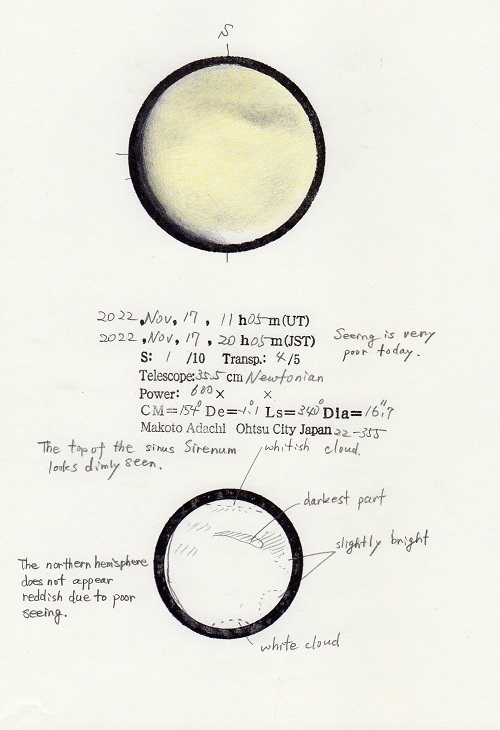 S
2022, Nov, 17, 11 h 05 m (UT)
2022, Nov, 17, 20 h 05 m (JST)
Seeing is very
poor today.
S: 1 /10 Transp.: 4/5
Telescope: 35.5 cm Newtonian
Power: 600 × ×
CM=154° De=-1.1 Ls=340° Dia=16".7
Makoto Adachi Ohtsu City Japan 22-355
The top of the sinus Sirenum
looks dimly seen.
whitish cloud.
darkest part
slightly bright
The northern hemisphere
does not appear
reddish due to poor
seeing.
white cloud